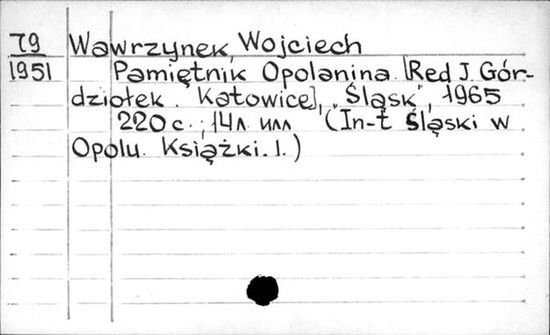 79 Wawrzynek, Wojciech
1951 Pamiętnik Opolanina. [Red J. Gór-
dziołek. Katowice], "Śląsk", 1965
220 с.; 14 л. илл (In-t Śląski w
Opolu. Książki. 1.)